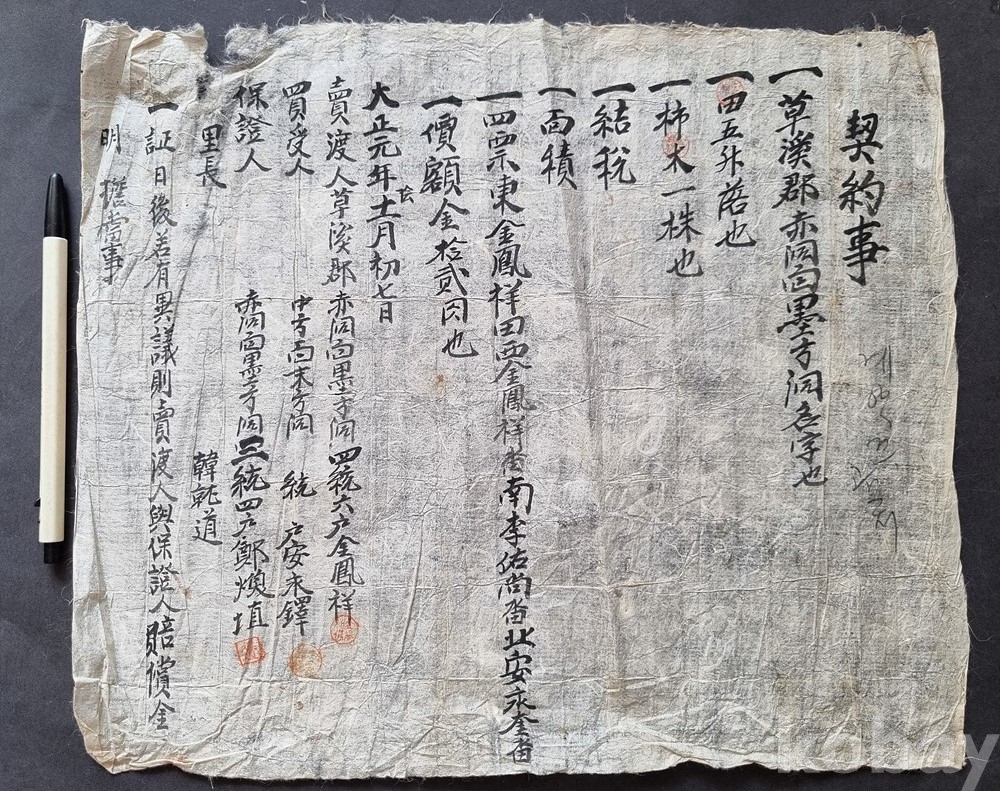 契約事
一草溪郡赤洞面墨方洞名字也
一田五升落也
一柿木一株也
一結稅
一面積
一四票東金鳳祥田西金鳳祥畓南李佑尚畓北安永奎畓
一價額金拾貳円也
大正元年十一月初七日
賣渡人草溪郡赤洞面墨方洞四統六戶金鳳祥
買受人 中方面末方洞 統 戶安永鐸
保證人 赤洞面墨方洞三統四戶鄭煥埴
里長 韓 道
一証日後若有異議則賣渡人與保證人賠償金
明 擔當事
kobay